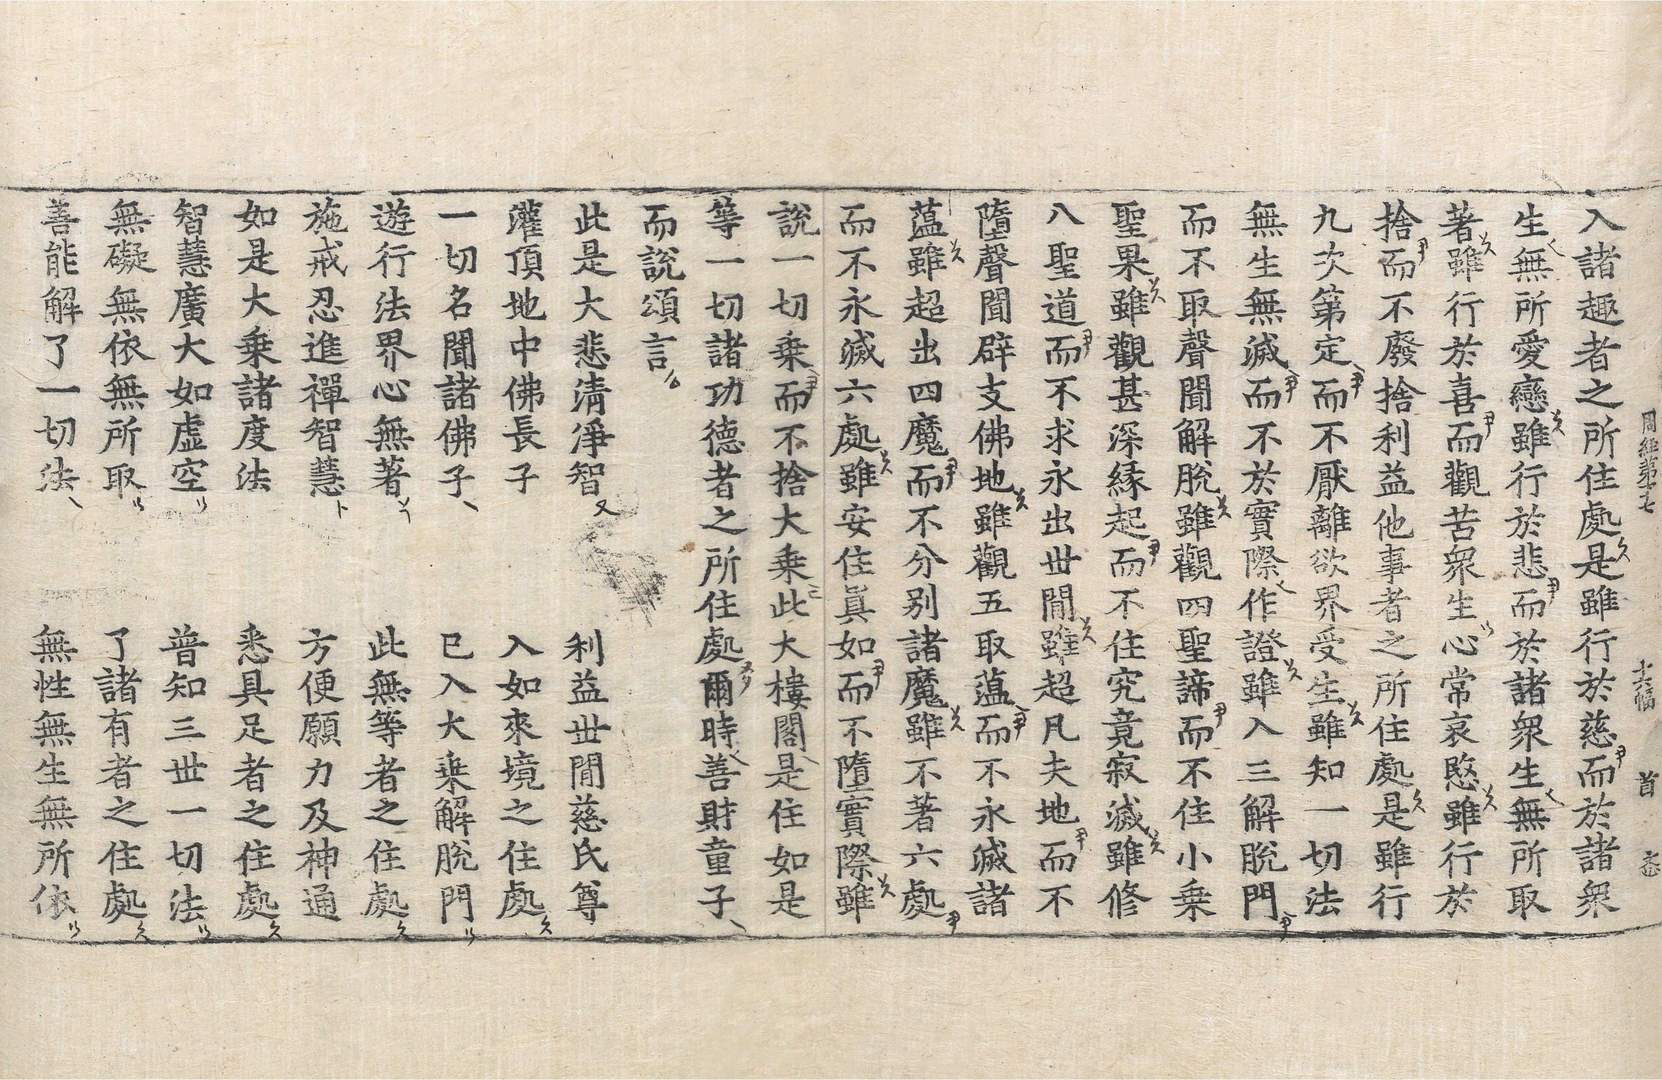 周經第十七 十六幅 首
入諸趣者之所住處是雖行於慈而於諸衆
生無所愛戀雖行於悲而於諸衆生無所取
著雖行於喜而觀苦衆生心常哀愍雖行於
捨而不廢捨利益他事者之所住處是雖行
九次第定而不厭離欲界受生雖知一切法
無生無滅而不於實際作證雖入三解脫門
而不取聲聞解脫雖觀四聖諦而不住小乗
聖果雖觀甚深縁起而不住究竟寂滅雖修
八聖道而不求永出世間雖超凡夫地而不
墮聲聞辟支佛地雖觀五取蘊而不永滅諸
蘊雖超出四魔而不分別諸魔雖不著六處
而不永滅六處雖安住眞如而不墮實際雖
說一切乗而不捨大乗此大樓閣是住如是
等一切諸功德者之所住處爾時善財童子
而說頌言
此是大悲清淨智 利益世間慈氏尊
灌頂地中佛長子 入如來境之住處
一切名聞諸佛子 已入大乗解脫門
遊行法界心無著 此無等者之住處
施戒忍進禪智慧 方便願力及神通
如是大乗諸度法 悉具足者之住處
智慧廣大如虛空 普知三世一切法
無礙無依無所取 了諸有者之住處
善能解了一切法 無性無生無所依